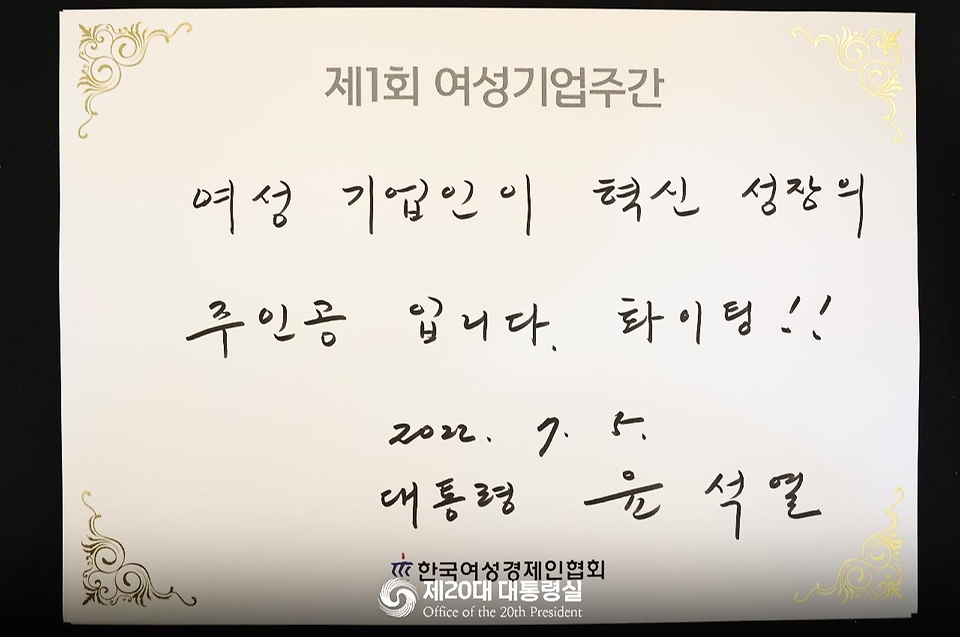 제1회 여성기업주간
여성 기업인이 혁신 성장의
주인공 입니다. 화이팅!!
2022. 7. 5.
대통령 윤석열
한국여성경제인협회
제20대 대통령실
Office of the 20th President